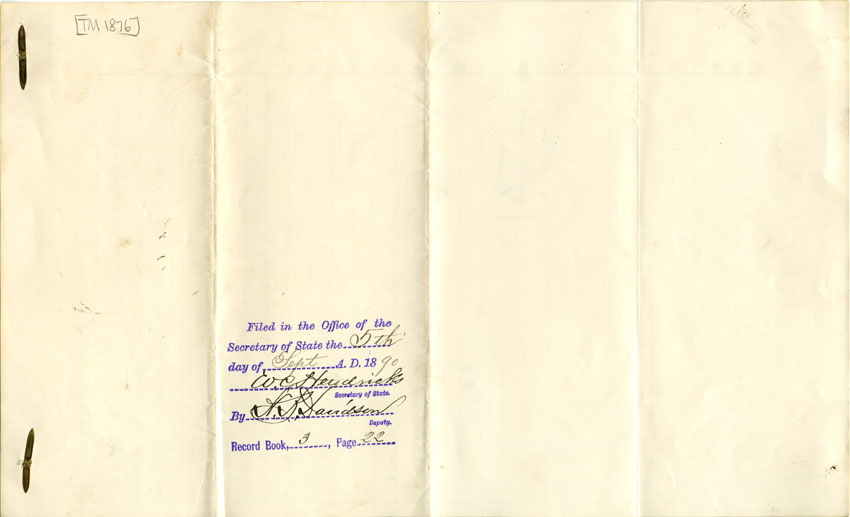 [TM 1876]
Filed in the Office of the
Secretary of State the 5th
day of Sept A. D. 1890
W. C. Hendricks
Secretary of State.
By
Deputy.
Record Book, 3, Page 22